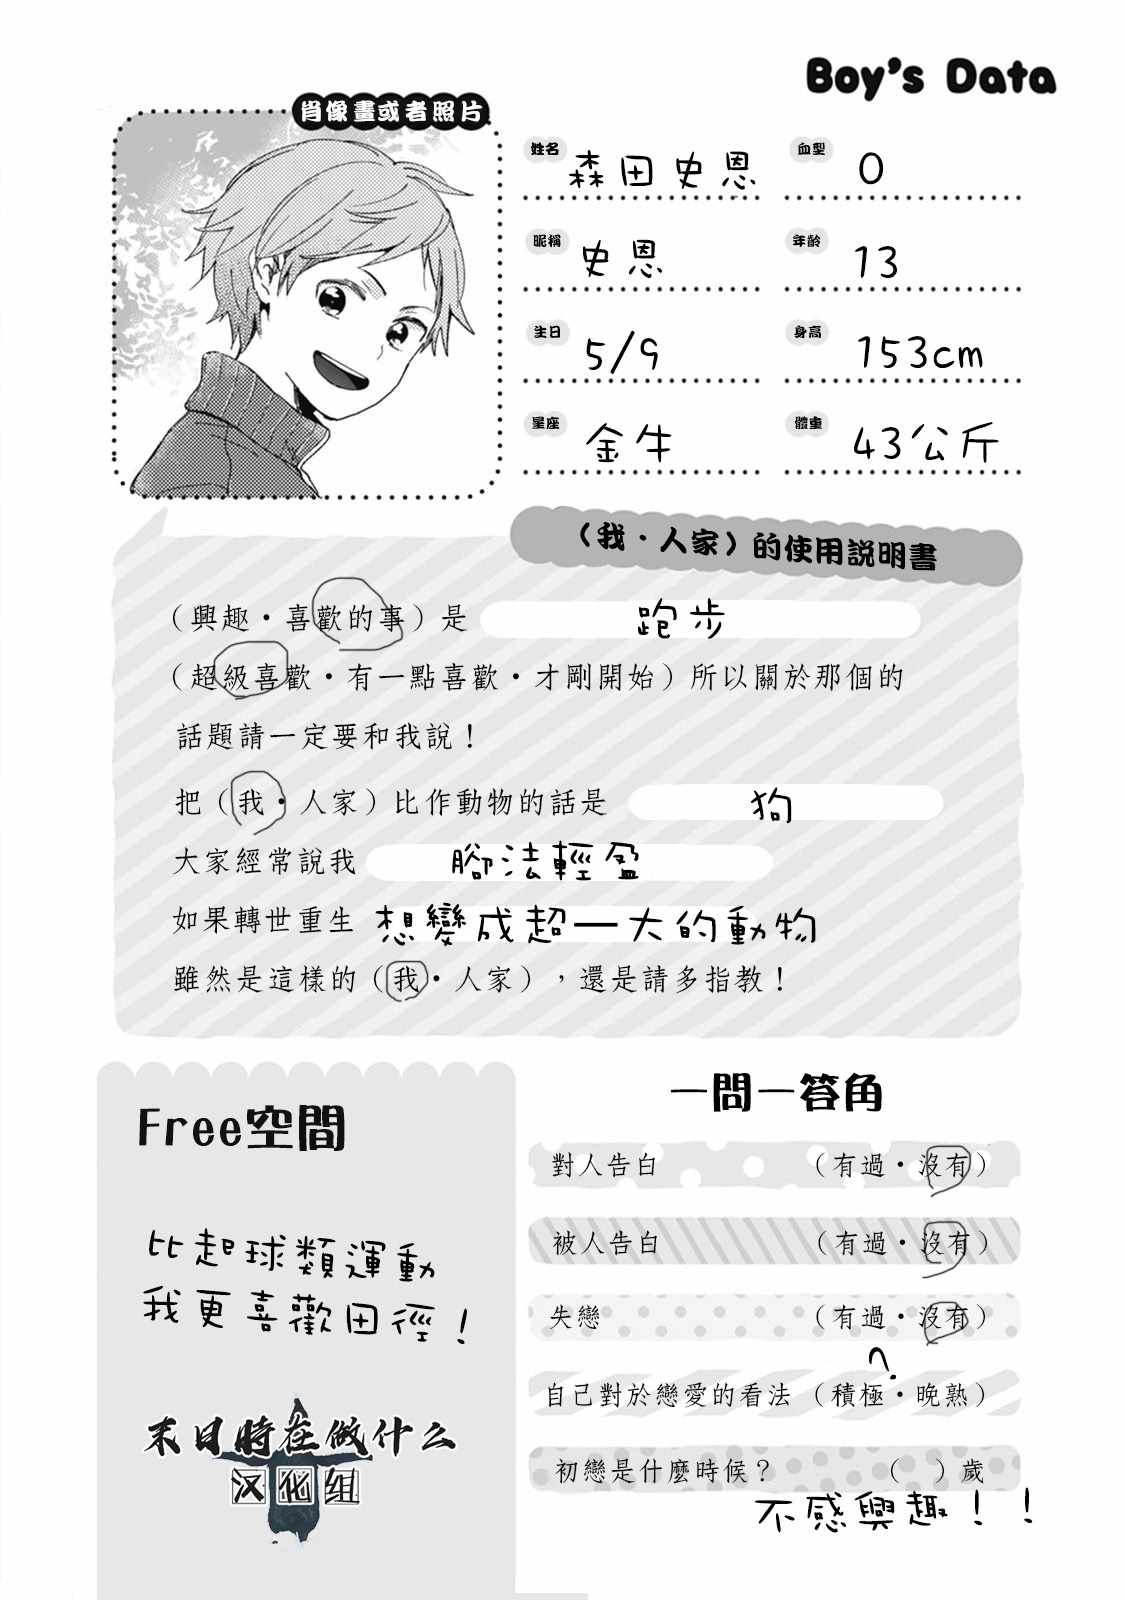 Boy's Data
肖像畫或者照片
姓名 森田史恩
血型 O
昵稱 史恩
年齡 13
生日 5/9
身高 153cm
星座 金牛
體重 43公斤
（我・人家）的使用説明書
（興趣・喜歡的事）是 跑步
（超級喜歡・有一點喜歡・才剛開始）所以關於那個的
話題請一定要和我說！
把（我・人家）比作動物的話是 狗
大家經常說我 腳法輕盈
如果轉世重生 想變成超一大的動物
雖然是這樣的（我・人家），還是請多指教！
Free空間
比起球類運動
我更喜歡田徑！
末日時在做什么
汉化组
一問一答角
對人告白 （有過・沒有）
被人告白 （有過・沒有）
失戀 （有過・沒有）
?
自己對於戀愛的看法 （積極・晚熟）
初戀是什麼時候？ （ ）歲
不感興趣！！